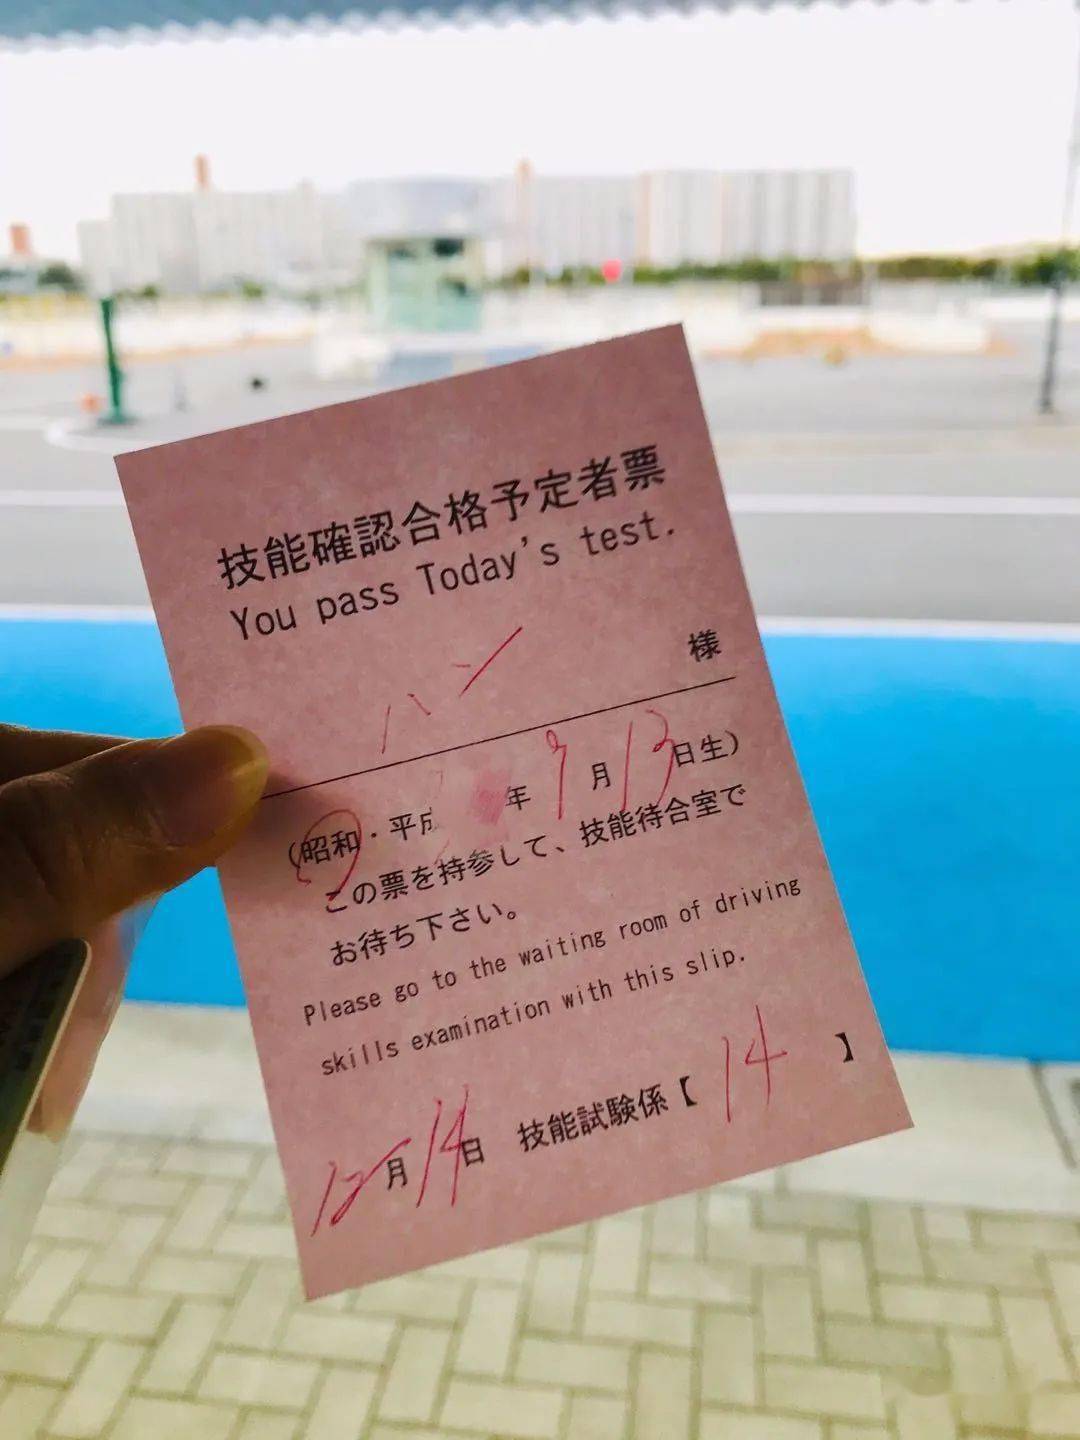 技能確認合格予定者票
You pass Today's test.
ハン 様
(昭和・平成 年 9月13日生)
この票を持参して、技能待合室で
お待ち下さい。
Please go to the waiting room of driving
skills examination with this slip.
12月14日 技能試験係【 14 】